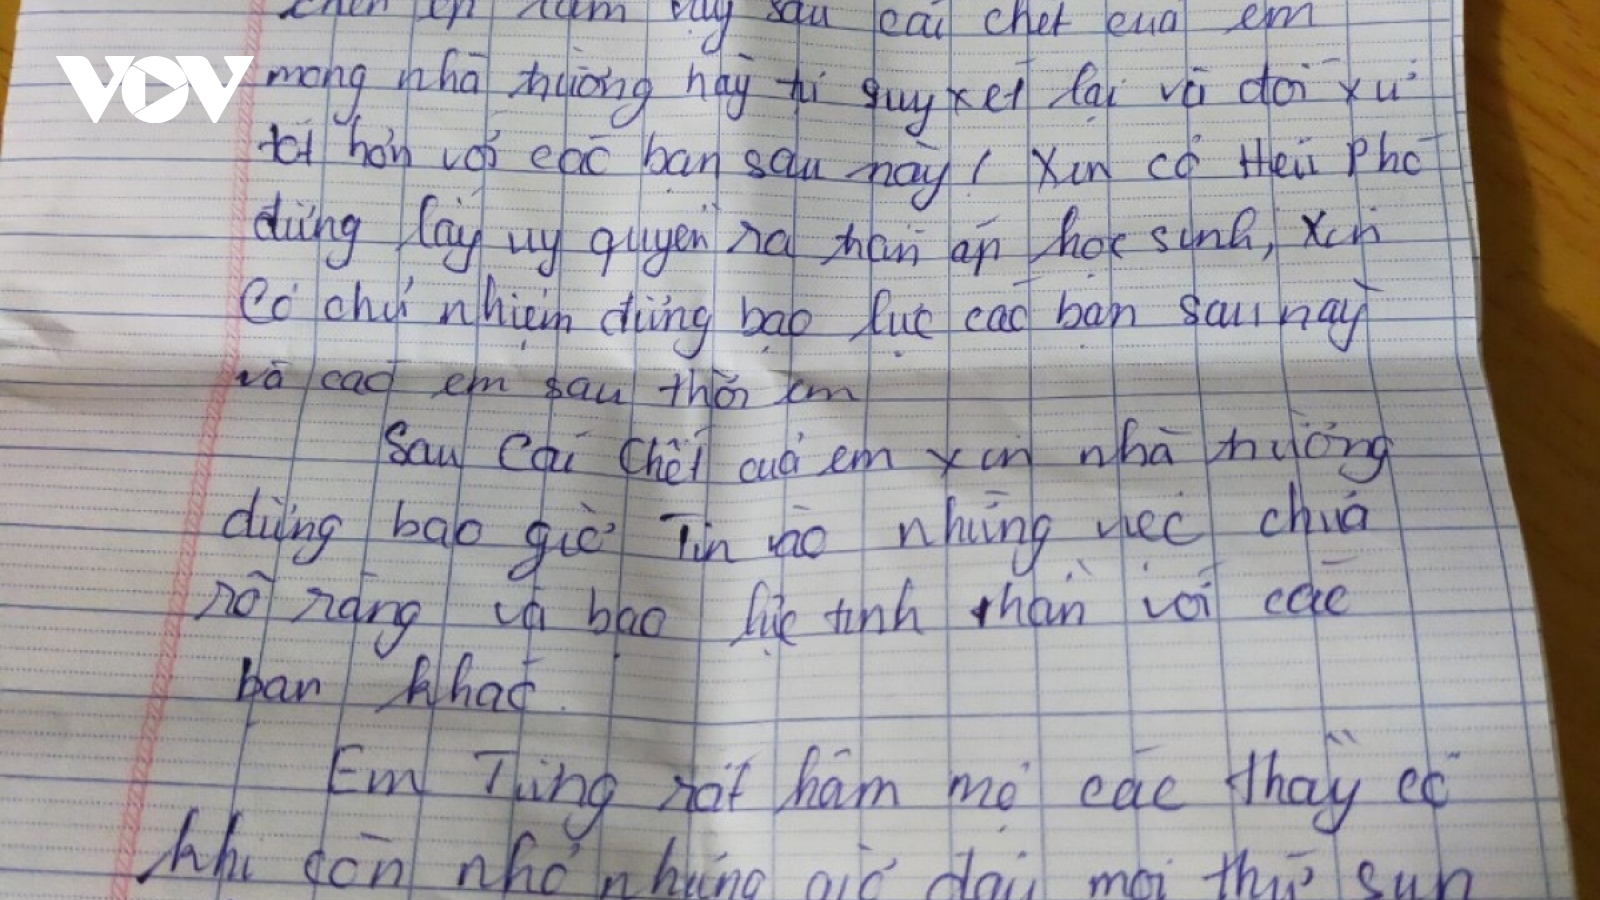 VOV
chèn ép năm vậy sau cái chết của em
mong nhà trường hãy tự suy xét lại và đối xử
tốt hơn với các bạn sau này! Xin cô Hiệu Phó
đừng lấy uy quyền ra trấn áp học sinh, Xin
Cô chủ nhiệm đừng bạo lực các bạn sau này
và các em sau thời em
Sau Cái Chết của em xin nhà trường
đừng bao giờ Tin vào những việc chưa
rõ ràng và bạo lực tinh thần với các
bạn khác.
Em Từng rất hâm mộ các thầy cô
khi còn nhỏ nhưng giờ đây mọi thứ sụp